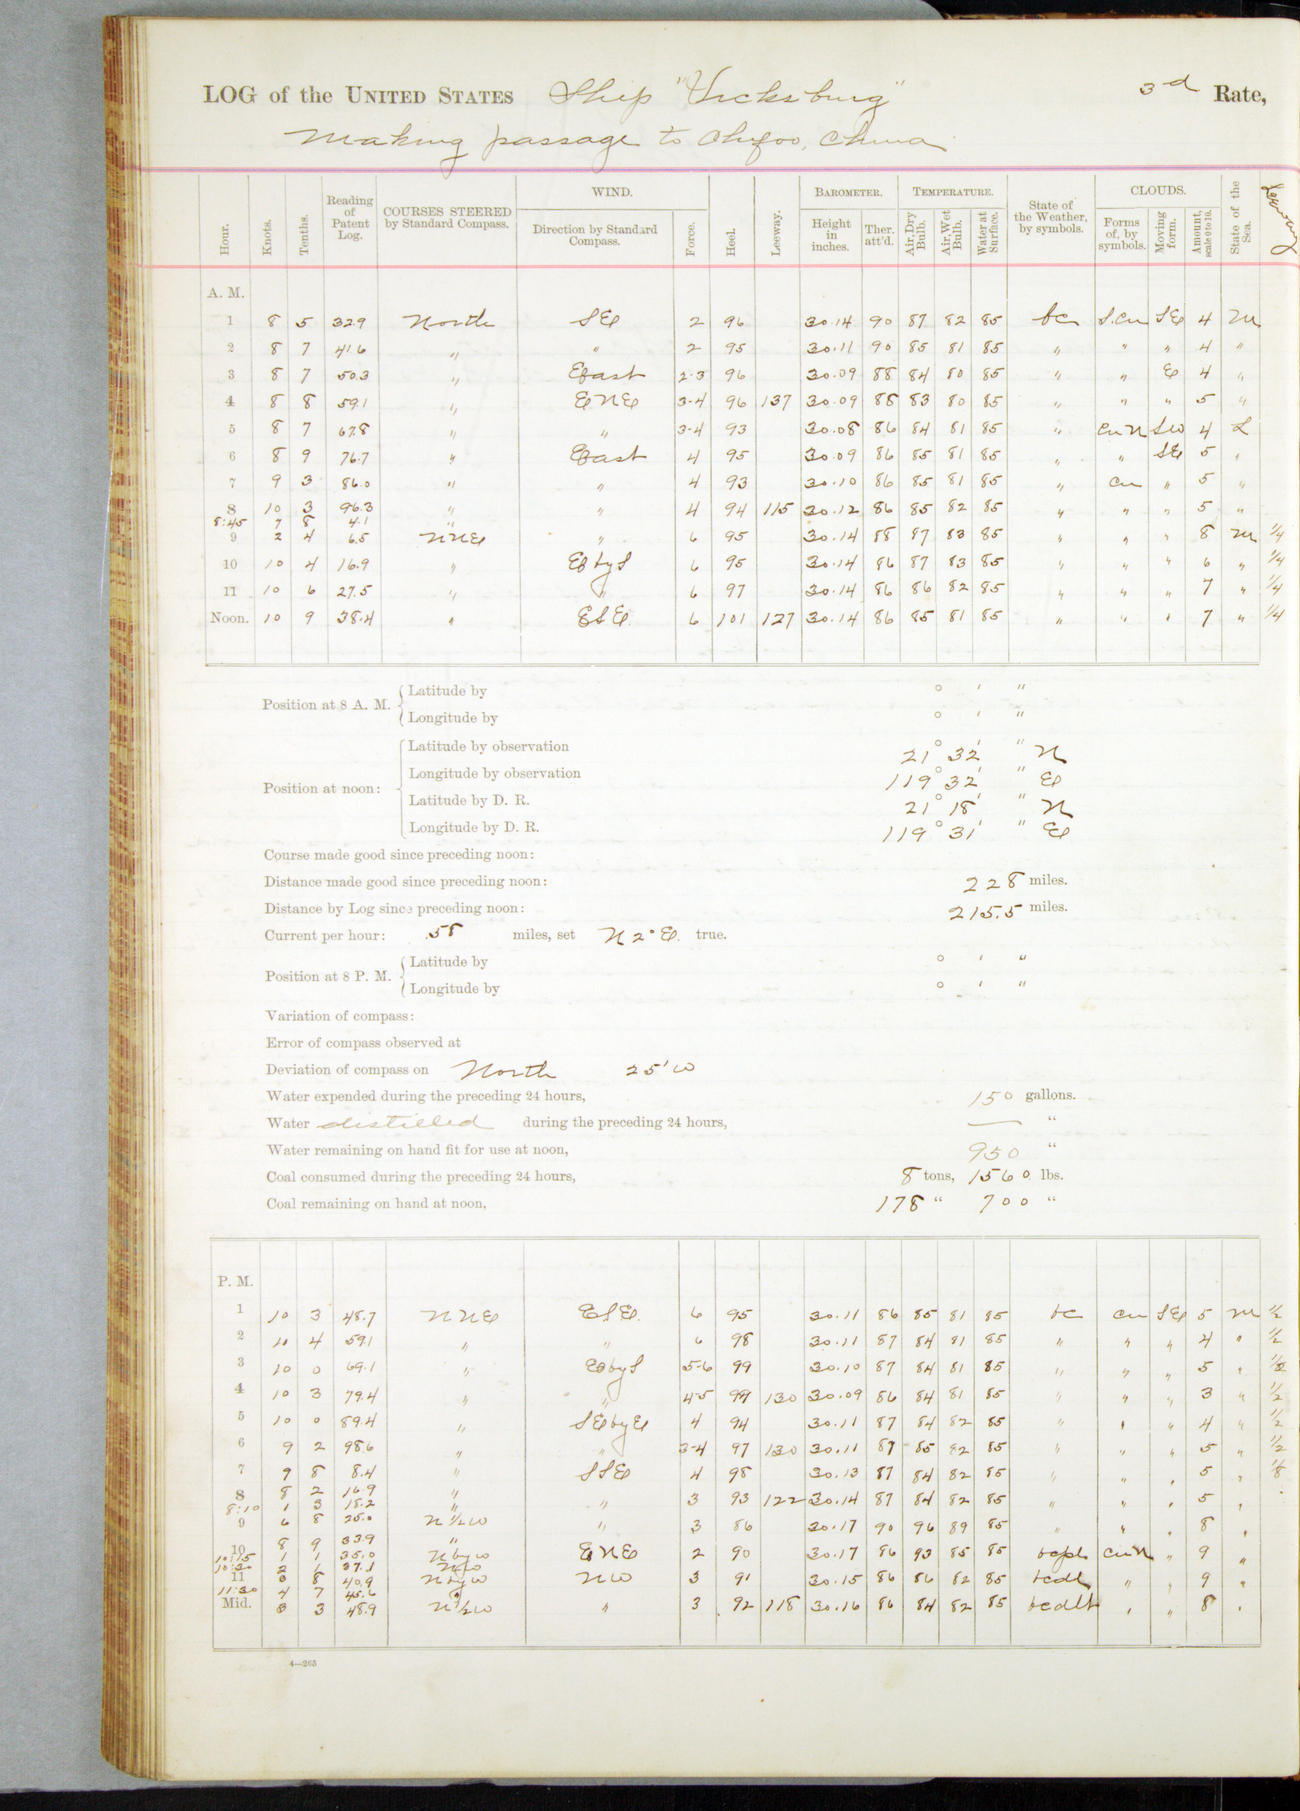 LOG of the UNITED STATES Ship "Vicksburg" 3rd Rate,
Making passage to Chefoo, China
Hour. Knots. Tenths. Reading of Patent Log. COURSES STEERED by Standard Compass. WIND. Direction by Standard Compass. Force. Heel. Leeway. BAROMETER. Height in inches. Ther. att'd. TEMPERATURE. Air, Dry Bulb. Air, Wet Bulb. Water at Surface. State of the Weather, by symbols. CLOUDS. Forms of, by symbols. Moving form. Amount, scale 0 to 10. State of the Sea. Leeway
A. M.
1 8 5 32.9 North SE 2 96 30.14 90 87 82 85 bc S.Cu SE 4 M
2 8 7 41.6 " " 2 95 30.11 90 85 81 85 " " " 4 "
3 8 7 50.3 " East 2-3 96 30.09 88 84 80 85 " " E 4 "
4 8 8 59.1 " ENE 3-4 96 137 30.09 88 83 80 85 " " " 5 "
5 8 7 67.8 " " 3-4 93 30.08 86 84 81 85 " Cu N SW 4 L
6 8 9 76.7 " East 4 95 30.09 86 85 81 85 " " SE 5 "
7 9 3 86.0 " " 4 93 30.10 86 85 81 85 " Cu " 5 "
8 10 3 96.3 " " 4 94 115 30.12 86 85 82 85 " " " 5 "
8:45 7 8 4.1 "
9 2 4 6.5 NNE " 6 95 30.14 88 87 83 85 " " " 8 M 1/4
10 10 4 16.9 " E by S 6 95 30.14 86 87 83 85 " " " 6 " 1/4
11 10 6 27.5 " " 6 97 30.14 86 86 82 85 " " " 7 " 1/4
Noon. 10 9 38.4 " ESE. 6 101 127 30.14 86 85 81 85 " " " 7 " 1/4
Position at 8 A. M. Latitude by ° ' "
Longitude by ° ' "
Position at noon: Latitude by observation 21° 32' " N
Longitude by observation 119° 32' " E
Latitude by D. R. 21° 18' " N
Longitude by D. R. 119° 31' " E
Course made good since preceding noon:
Distance made good since preceding noon: 228 miles.
Distance by Log since preceding noon: 215.5 miles.
Current per hour: .58 miles, set N 2° E. true.
Position at 8 P. M. Latitude by ° ' "
Longitude by ° ' "
Variation of compass:
Error of compass observed at
Deviation of compass on North 25' W
Water expended during the preceding 24 hours, 150 gallons.
Water distilled during the preceding 24 hours, — "
Water remaining on hand fit for use at noon, 950 "
Coal consumed during the preceding 24 hours, 8 tons, 1560 lbs.
Coal remaining on hand at noon, 178 " 700 "
P. M.
1 10 3 48.7 NNE ESE. 6 95 30.11 86 85 81 85 bc Cu SE 5 M 1/2
2 10 4 59.1 " " 6 98 30.11 87 84 81 85 " " " 4 " 1/2
3 10 0 69.1 " E by S 5-6 99 30.10 87 84 81 85 " " " 5 " 1/2
4 10 3 79.4 " " 4-5 99 130 30.09 86 84 81 85 " " " 3 " 1/2
5 10 0 89.4 " SE by E 4 94 30.11 87 84 82 85 " " " 4 " 1/2
6 9 2 98.6 " " 3-4 97 130 30.11 87 85 82 85 " " " 5 " 1/2
7 9 8 8.4 " SSE 4 98 30.13 87 84 82 85 " " " 5 "
8 8 2 16.9 " " 3 93 122 30.14 87 84 82 85 " " " 5 "
8:10 1 3 18.2 "
9 6 8 25.0 N 1/2 W " 3 86 30.17 90 96 89 85 " " " 8 "
10 8 9 33.9 " ENE 2 90 30.17 86 93 85 85 Cu N " 9 "
10:15 1 1 35.0 N by W
10:30 2 1 37.1
11 3 8 40.9 N by W NW 3 91 30.15 86 86 82 85 bcdl " " 9 "
11:30 4 7 45.6 "
Mid. 3 3 48.9 N 1/2 W " 3 92 118 30.16 86 84 82 85 " " 8 "
4—265